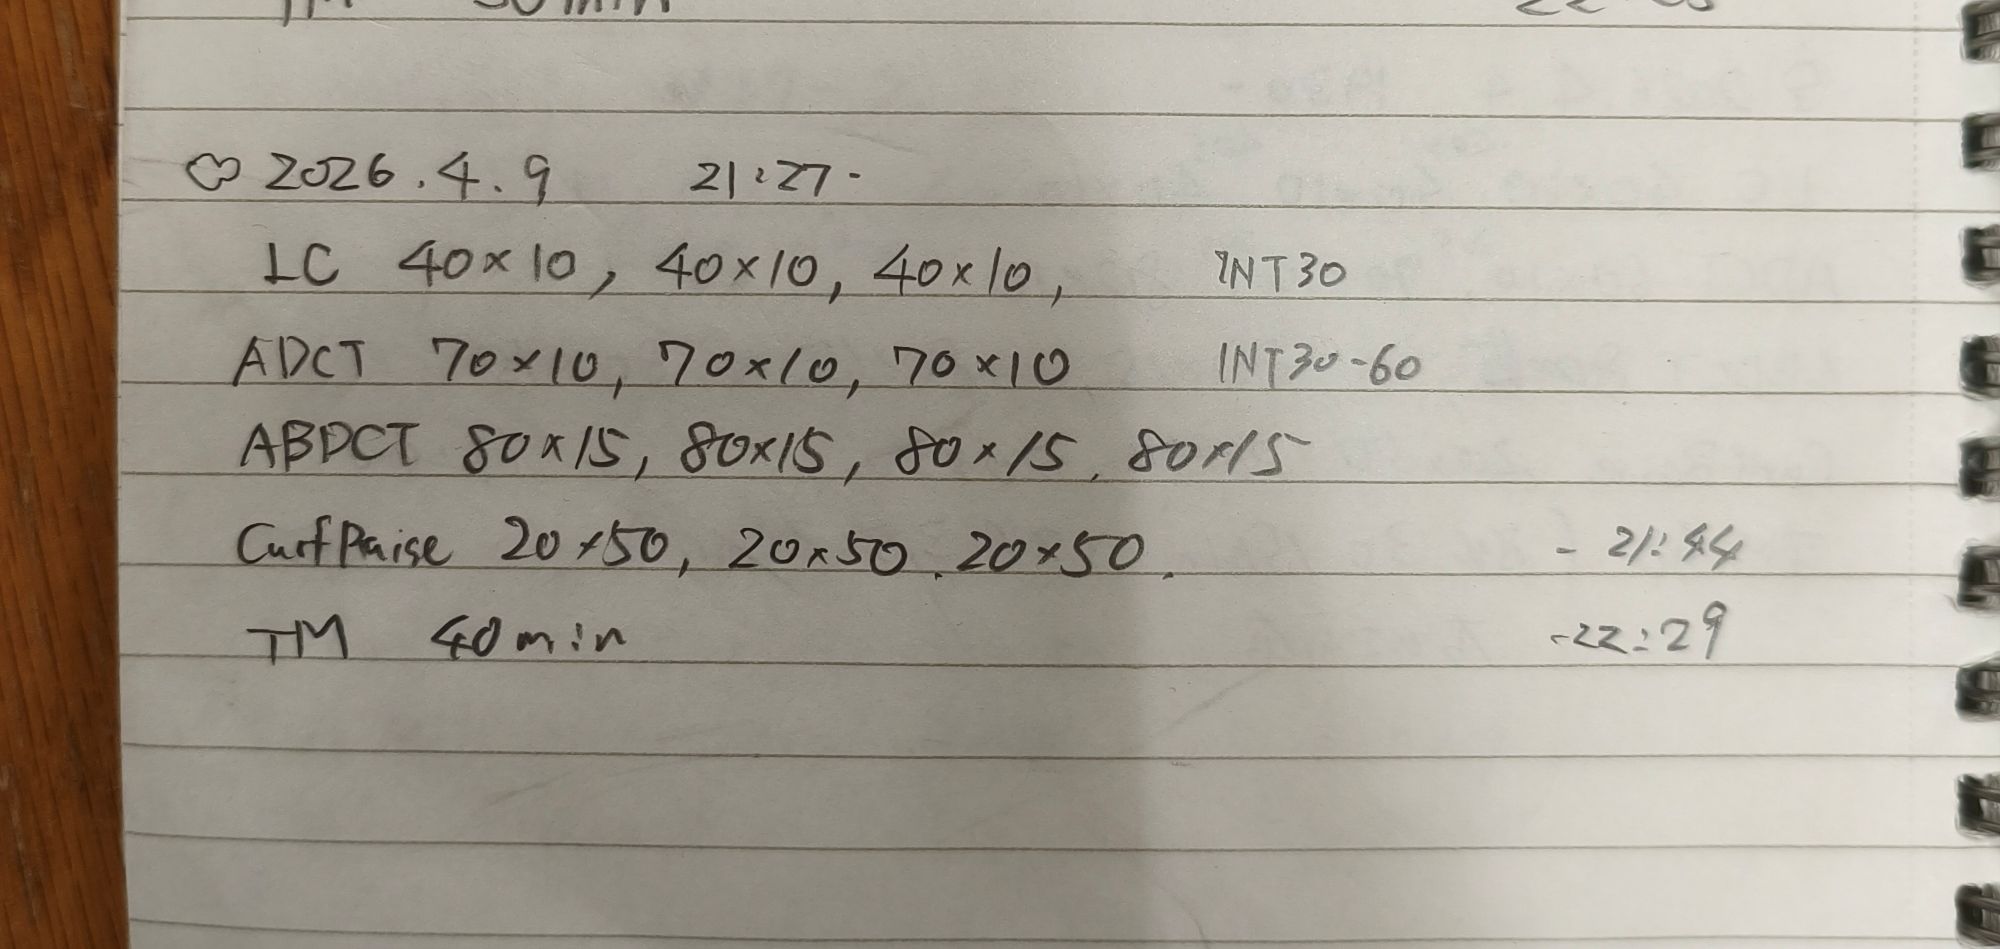 2026.4.9 21:27-
LC 40×10, 40×10, 40×10, INT30
ADCT 70×10, 70×10, 70×10 INT30-60
ABDCT 80×15, 80×15, 80×15, 80×15
CurfRaise 20×50, 20×50, 20×50, - 21:44
TM 40min -22:29